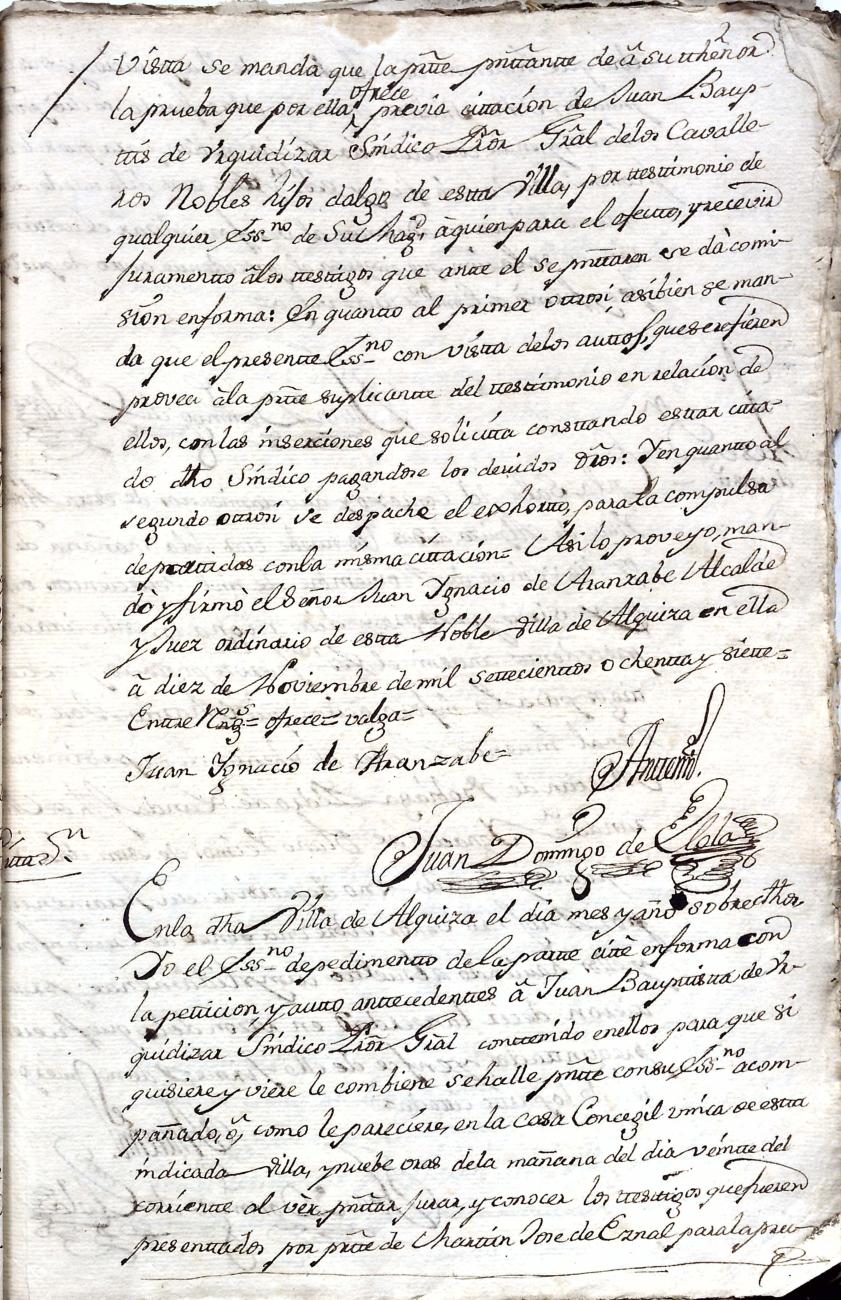 Vistta se manda que la prtte prttantte de â su tthenor
la prueba que por ella ofrece previa cittación de Juan Baup-
ttis de Vrquidizar Síndico Pror Gral de los Cavalle-
ros Nobles hijos dalgo de estta Villa, por ttesttimonio de
qualquier Essno de Su Magd, â quien para el efectto, y recevir
Juramentto âlos ttesttigos que antte el se prttaren se dà comi-
sión en forma: En quantto al primer ottrosi asibien se man-
da que el presentte Essno con vistta delos auttos, que se refieren
provea âla prtte suplicantte del ttesttimonio en relación de
ellos, con las inserciones que solicitta consttando esttar citta-
do dho Síndico pagandose los devidos dros: Y en quantto al
segundo ottrosi se despache el exhortto, para la compulsa
de parttidas con la misma cittación= Asi lo proveyo, man-
dò y firmò el Señor Juan Ygnacio de Aranzabe Alcalde
y Juez ordinario de estta Noble Villa de Alquiza en ella
â diez de Noviembre de mil settecienttos ochentta y siette=
Entre Rengs= ofrece= valga=
Juan Ygnacio de Aranzabe=
Anttemi.
Juan Domingo de Elola
En la dha Villa de Alquiza el dia mes y año sobredhos
Yo el Essno de pedimentto de la partte citè en forma con
la petticion y autto anttecedenttes â Juan Bauptistta de Vr-
quidizar Síndico Pror Gral conttenido en ellos para que si
quisiere y viere le combiene se halle prtte con su Essno acom-
pañado, ô, como le pareciere, en la casa Concegil vnica de estta
indicada Villa, y nuebe oras de la mañana del dia veintte del
corrientte al vèr prttar jurar, y conocer los ttesttigos que fueren
presenttados por prtte de Marttin Jose de Eznal para la prue-